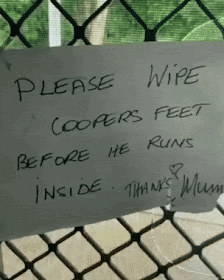 PLEASE WIPE
COOPERS FEET
BEFORE HE RUNS
INSIDE. THANKS Mum